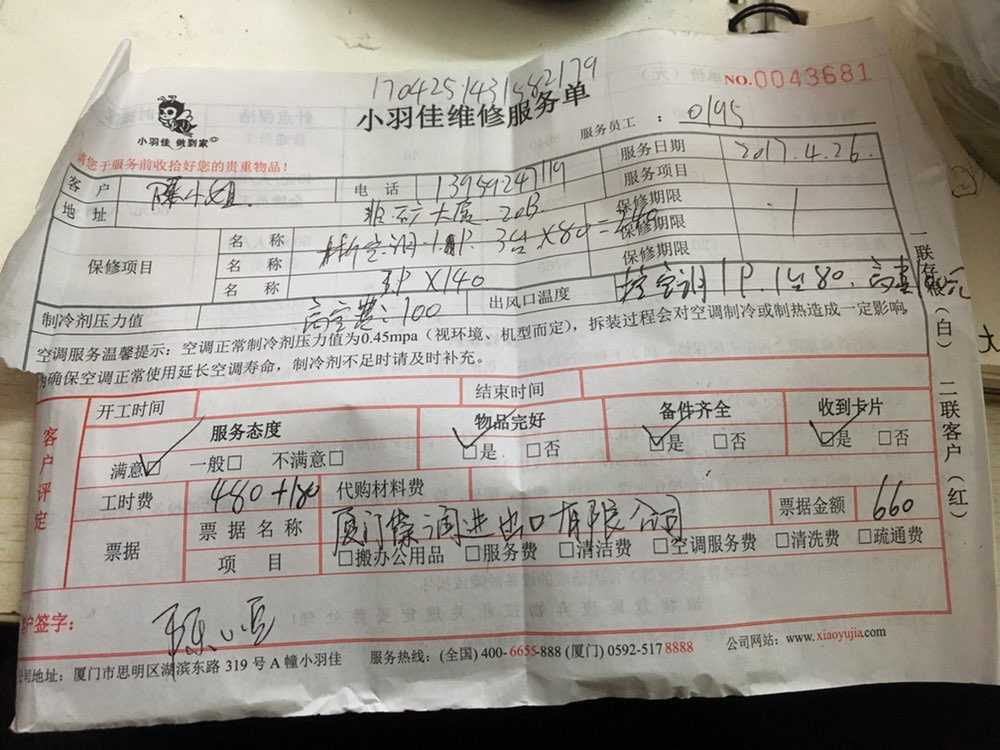 1704251431582179
NO.0043681
小羽佳维修服务单
小羽佳 做到家
服务员工 : 0195
请您于服务前收拾好您的贵重物品!
服务日期 2017.4.26.
客户 陈小姐. 电话 13959247119 服务项目
地址 大厦 20B 保修期限
保修项目 名称 空调 3台×80= 保修期限
名称 3P×140 保修期限
名称
制冷剂压力值 高空费:100 出风口温度 空调1P.1台80.高
空调服务温馨提示:空调正常制冷剂压力值为0.45mpa(视环境、机型而定),拆装过程会对空调制冷或制热造成一定影响,
内确保空调正常使用延长空调寿命,制冷剂不足时请及时补充。
一联存根(白) 二联客户(红)
客户评定
开工时间 结束时间
服务态度 物品完好 备件齐全 收到卡片
满意☑ 一般□ 不满意□ ☑是 □否 ☑是 □否 ☑是 □否
工时费 480+180 代购材料费
票据 票据名称 厦门 润进出口有限公司 票据金额 660
项目 □搬办公用品 □服务费 □清洁费 □空调服务费 □清洗费 □疏通费
客户签字:
公司地址:厦门市思明区湖滨东路 319 号 A 幢小羽佳 服务热线:(全国) 400-6655-888 (厦门) 0592-517 8888 公司网站:www.xiaoyujia.com